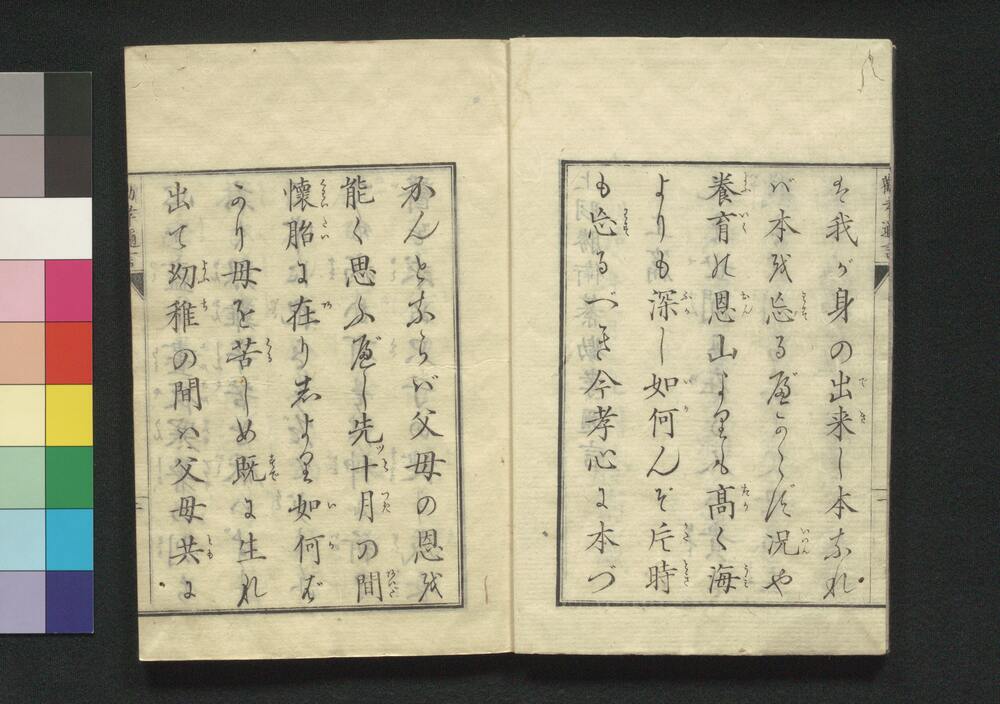 は我が身の出来し本なれ
バ本を忘るべからず況や
養育の恩山よりも高く海
よりも深し如何んぞ片時
も忘るべき今孝心に本づ
かんとならバ父母の恩を
能く思ふべし先十月の間
懐胎に在り〱しより如何ば
かり母を苦しめ既に生れ
出て幼稚の間ハ父母共に